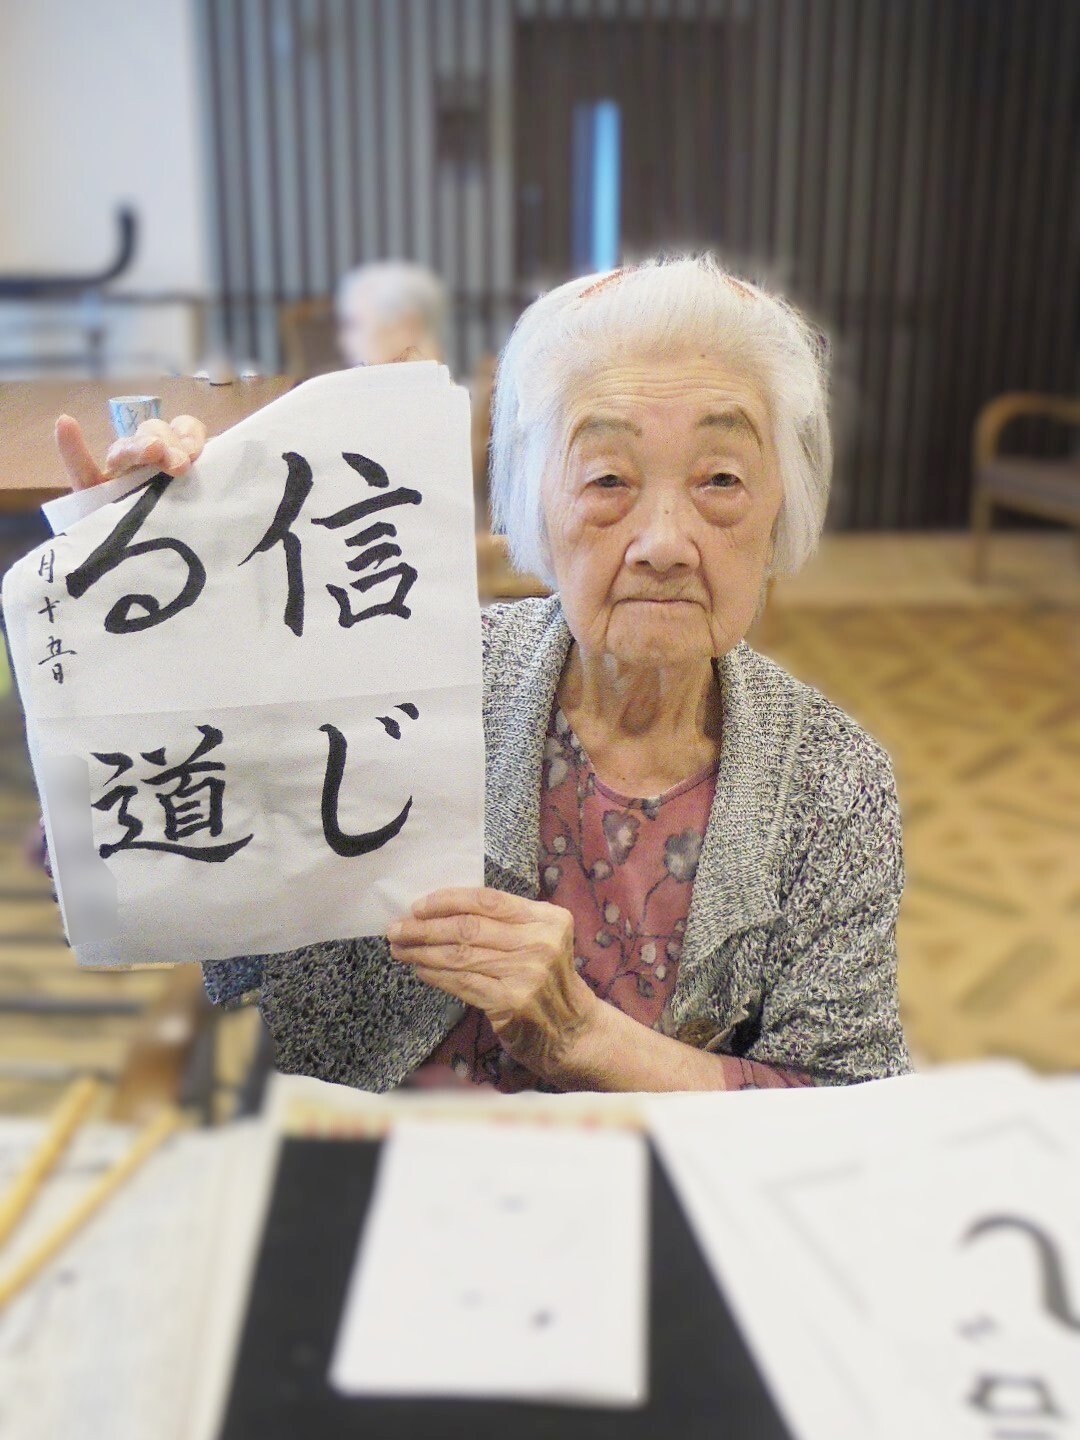 信じ
る道
一月十五日